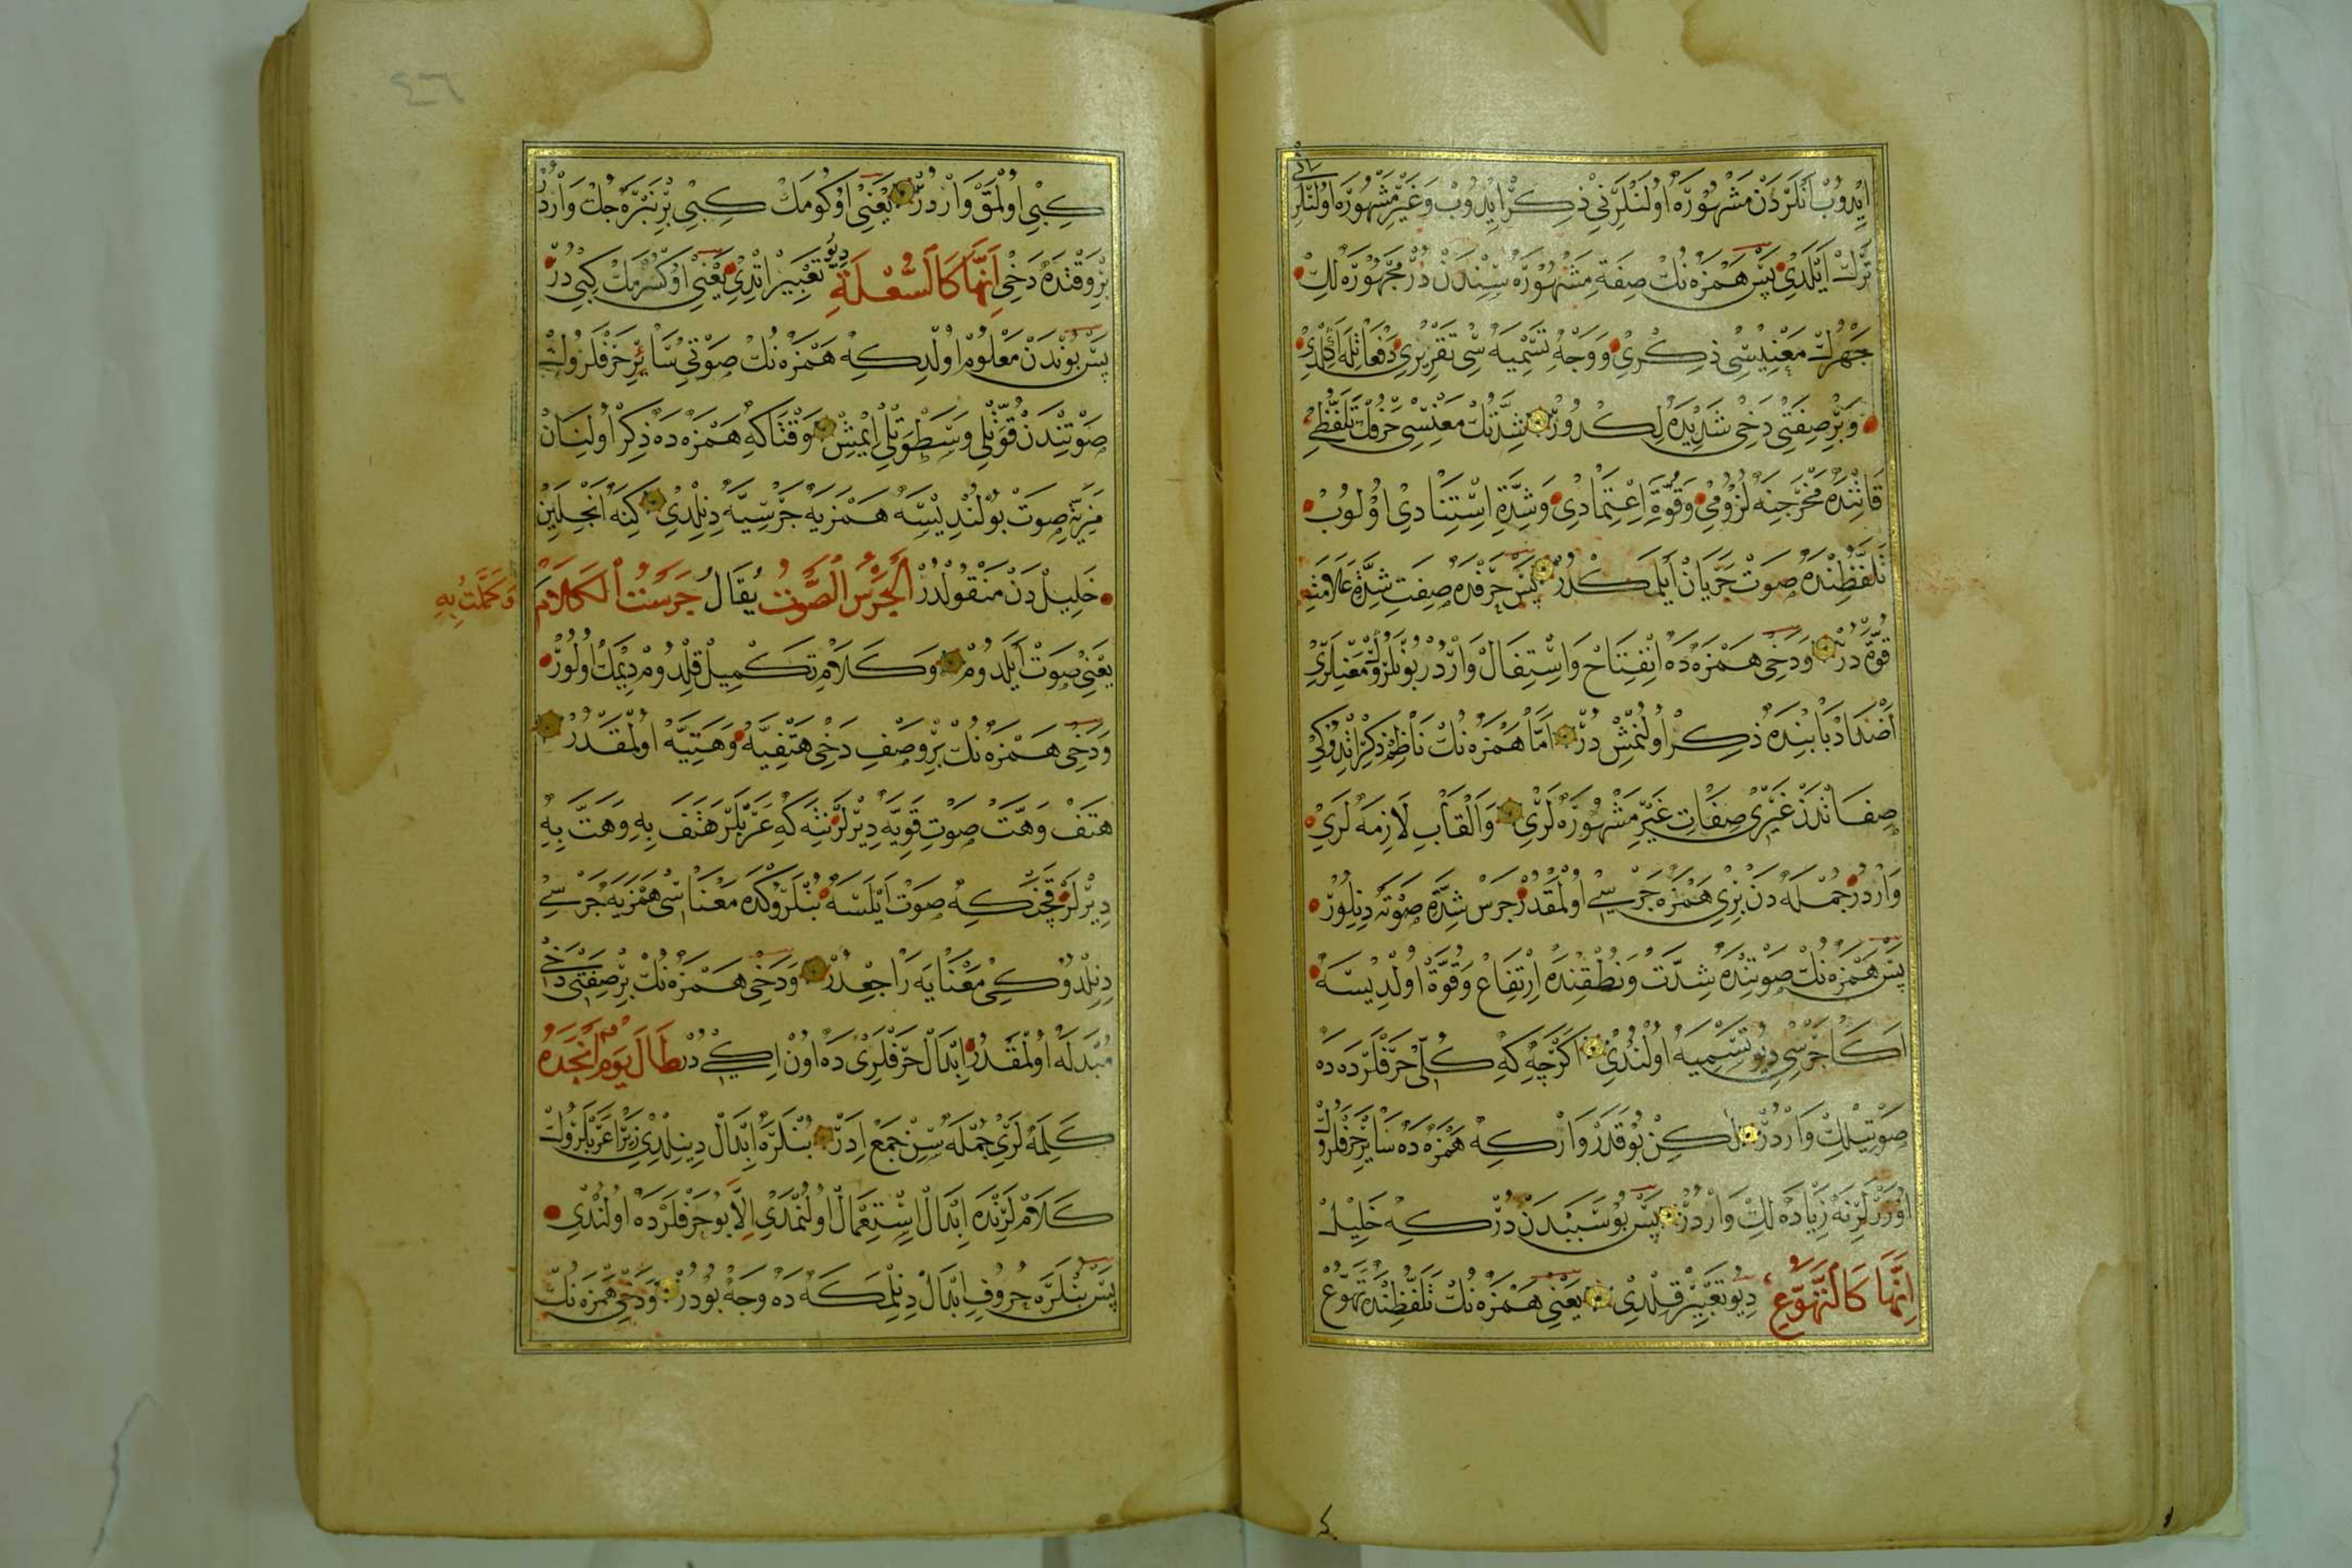 ايدوب انلردن مشهوره اولنلرنى ذكر ايدوب وغير مشهوره اولنلرنى
ترك ايلدى پس همزه نك صفة مشهوره سندن در مجهوره لك
جهرك معنيسى ذكرى ووجه تسميه سى تقريرى دفعاتله اولدى
وبر صفتى دخى شديده لكدر شدتك معنيسى حرفك تلفظى
قاتنده مخرجنه لزومى وقوة اعتمادى وشدة استنادى اولوب
تلفظنده صوت جريان ايلمكدر پس حرفده صفت شدة علامت
قوة در ودخى همزه ده انفتاح واستفال واردر بونلرك معنيلرى
اضداد بابنده ذكر اولنمش در اما همزه نك ناظم ذكر اتدوكى
صفاتدن غيرى صفات غير مشهوره لرى والقاب لازمه لرى
واردر جمله دن برى همزه جرسى اولمقدر جرس شدة صوته دينلور
پس همزه نك صوتنده شدت ونطقنده ارتفاع وقوة اولديسه
اكا جرسى ديو تسميه اولندى اكرچه كه كل حرفلرده ده
صوتيلك واردر لكن بو قدر وار كه همزه ده سائر حرفلرك
اوزرلرنه زياده لك واردر پس بو سببدن در كه خليل
إنها كالتهوع ديو تعبير قلدى يعنى همزه نك تلفظنده تهوع
٤٦
كبى اولمق واردر يعنى اوكومك كبى بر نبره جك واردر
بر وقتده دخى إنها كالسعلة ديو تعبير اتدى يعنى اوكسرمك كبى در
پس بوندن معلوم اولدكه همزه نك صوتى سائر حرفلرك
صوتندن قوتلى وسطوتلى ايمش وقتاكه همزه ده ذكر اولنان
مزية صوت بولنديسه همزيه جرسيه دينلدى كنه انجلين
خليل دن منقولدر الجرس الصوت يقال جرست الكلام
وكملت به
يعنى صوت ايلدوم وكلام تكميل قلدوم ديمك اولور
ودخى همزه نك بر وصف دخى هتفيه وهتيه اولمقدر
هتف وهت صوت قويه ديرلر نته كه عربلر هتف به وهت به
ديرلر قچن كه صوت ايلسه بنلروكده معناسى همزيه جرسى
دينلدوكى معنايه راجعدر ودخى همزه نك بر صفتى دخى
مبدله اولمقدر ابدال حرفلرى ده اون ايكى در طال يوم أنجده
كلمه لرى جمله سن جمع ادر بنلره ابدال دينلدى زيرا عربلرك
كلاملرنده ابدال استعمال اولنمدى الا بو حرفلرده اولندى
پس بنلره حروف ابدال دينلمكه ده وجه بودر ودخى همزه نك